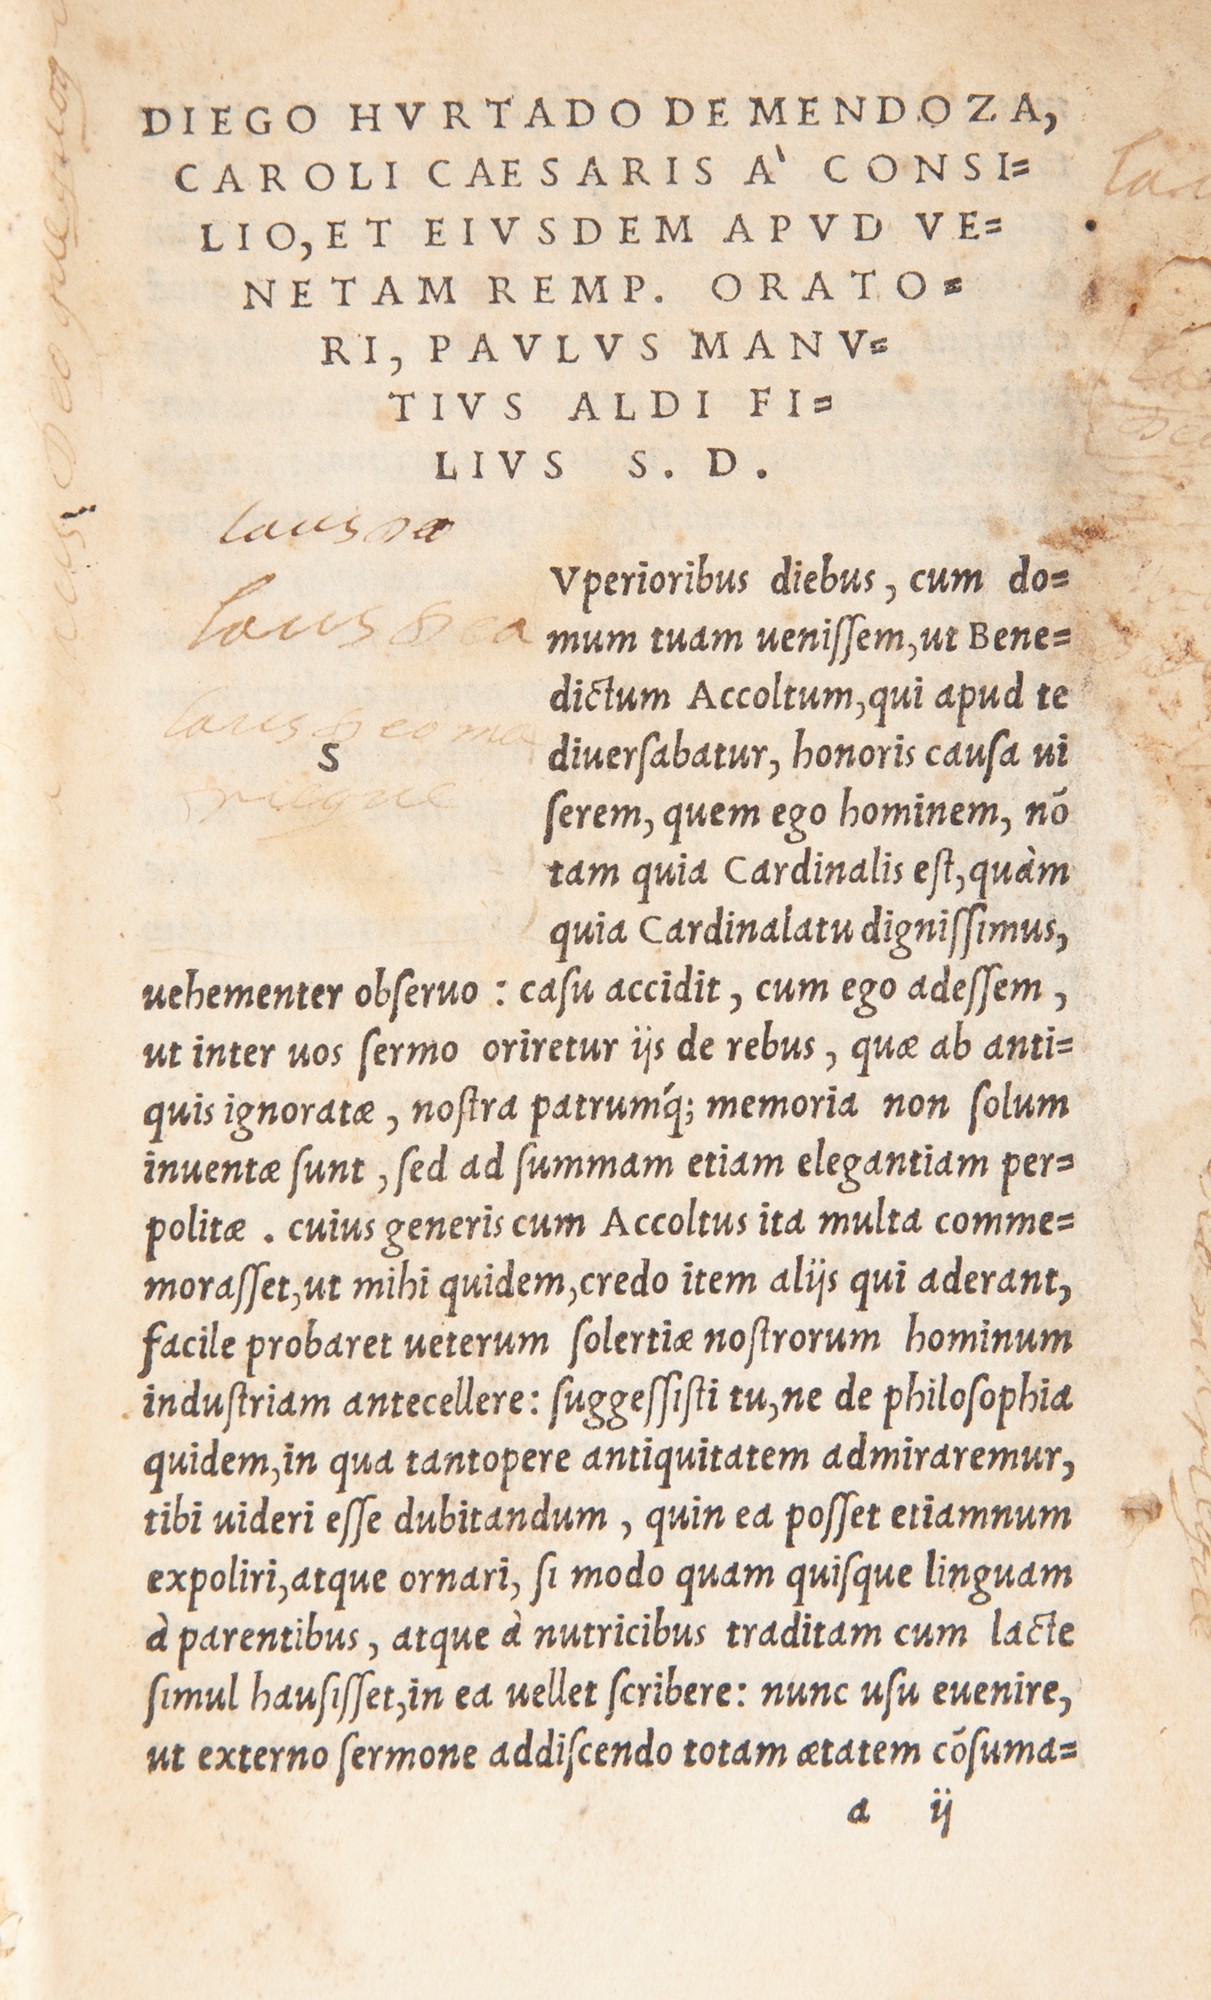 DIEGO HVRTADO DE MENDOZA,
CAROLI CAESARIS A' CONSI=
LIO, ET EIVSDEM APVD VE=
NETAM REMP. ORATO=
RI, PAVLVS MANV=
TIVS ALDI FI=
LIVS S. D.
laus
laus
laus deo
S
Vperioribus diebus, cum do=
mum tuam ueniſſem, ut Bene=
dictum Accoltum, qui apud te
diuerſabatur, honoris cauſa ui
ſerem, quem ego hominem, nõ
tam quia Cardinalis eſt, quàm
quia Cardinalatu digniſſimus,
uehementer obſeruo : caſu accidit, cum ego adeſſem,
ut inter uos ſermo oriretur ijs de rebus, quæ ab anti=
quis ignoratæ, noſtra patrumq́; memoria non ſolum
inuentæ ſunt, ſed ad ſummam etiam elegantiam per=
politæ. cuius generis cum Accoltus ita multa comme=
moraſſet, ut mihi quidem, credo item alijs qui aderant,
facile probaret ueterum ſolertiæ noſtrorum hominum
induſtriam antecellere: ſuggeſſiſti tu, ne de philoſophia
quidem, in qua tantopere antiquitatem admiraremur,
tibi uideri eſſe dubitandum, quin ea poſſet etiamnum
expoliri, atque ornari, ſi modo quam quiſque linguam
à parentibus, atque à nutricibus traditam cum lacte
ſimul hauſiſſet, in ea uellet ſcribere: nunc uſu euenire,
ut externo ſermone addiſcendo totam ætatem cõſuma=
a ij